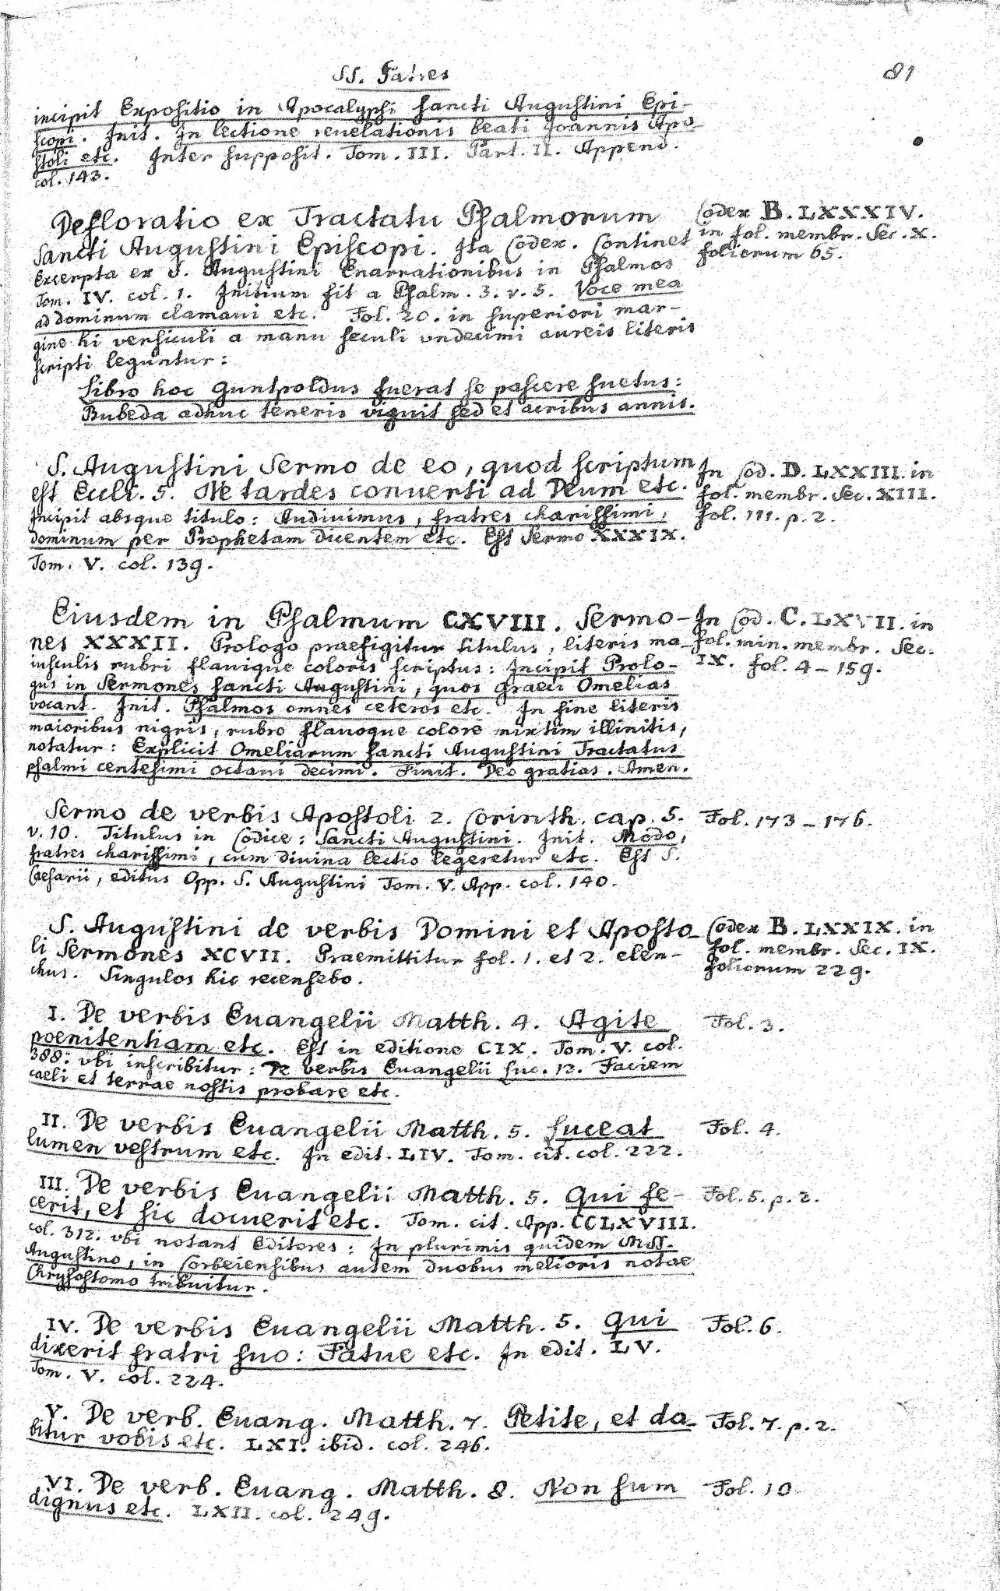 SS. Patres
81
incipit Expositio in Apocalypsi sancti Augustini Epi-
scopi. Init. In lectione reuelationis beati Joannis Apo-
stoli etc. Inter supposit. Tom. III. Part. II. Append.
col. 143.
Defloratio ex Tractatu Psalmorum
Sancti Augustini Episcopi. Ita Codex. Continet
Excerpta ex S. Augustini Enarrationibus in Psalmos
Tom. IV. col. 1. Initium fit a Psalm. 3. v. 5. Voce mea
ad dominum clamaui etc. Fol. 20. in superiori mar-
gine hi versiculi a manu seculi vndecimi aureis literis
scripti leguntur:
Libro hoc Guntpoldus fuerat se pascere suetus:
Rubeda adhuc teneris viguit sed et acribus annis.
Codex B. LXXXIV.
in fol. membr. Sec. X.
foliorum 65.
S. Augustini Sermo de eo, quod scriptum
est Eccli. 5. Ne tardes conuerti ad Deum etc.
Incipit absque titulo: Audiuimus, fratres charissimi,
dominum per Prophetam dicentem etc. Est Sermo XXXIX.
Tom. V. col. 139.
In Cod. D. LXXIII. in
fol. membr. Sec. XIII.
fol. 111. p. 2.
Eiusdem in Psalmum CXVIII. Sermo-
nes XXXII. Prologo praefigitur titulus, literis ma-
iusculis rubri flauique coloris scriptus: Incipit Prolo-
gus in Sermones sancti Augustini, quos Graeci Omelias
vocant. Init. Psalmos omnes ceteros etc. In fine literis
maioribus nigris, rubro flauoque colore mixtim illinitis,
notatur: Explicit Omeliarum sancti Augustini Tractatus
psalmi centesimi octaui decimi. Finit. Deo gratias. Amen.
In Cod. C. LXVII. in
fol. min. membr. Sec.
IX. fol. 4-159.
Sermo de verbis Apostoli 2. Corinth. cap. 5.
v. 10. Titulus in Codice: Sancti Augustini. Init. Modo,
fratres charissimi, cum diuina lectio legeretur etc. Est S.
Caesarii, editus Opp. S. Augustini Tom. V. App. col. 140.
Fol. 173-176.
S. Augustini de verbis Domini et Aposto-
li Sermones XCVII. Praemittitur fol. 1. et 2. elen-
chus. Singulos hic recensebo.
Codex B. LXXIX. in
fol. membr. Sec. IX.
foliorum 229.
I. De verbis Euangelii Matth. 4. Agite
poenitentiam etc. Est in editione CIX. Tom. V. col.
388: vbi inscribitur: De verbis Euangelii Luc. 12. Faciem
caeli et terrae nostis probare etc.
Fol. 3.
II. De verbis Euangelii Matth. 5. Luceat
lumen vestrum etc. In edit. LIV. Tom. cit. col. 222.
Fol. 4.
III. De verbis Euangelii Matth. 5. Qui fe-
cerit, et sic docuerit etc. Tom. cit. App. CCLXVIII.
col. 312. vbi notant Editores: In plurimis quidem MSS.
Augustino, in Corbeiensibus autem duobus melioris notae
Chrysostomo tribuitur.
Fol. 5. p. 2.
IV. De verbis Euangelii Matth. 5. Qui
dixerit fratri suo: Fatue etc. In edit. LV.
Tom. V. col. 224.
Fol. 6.
V. De verb. Euang. Matth. 7. Petite, et da-
bitur vobis etc. LXI. ibid. col. 246.
Fol. 7. p. 2.
VI. De verb. Euang. Matth. 8. Non sum
dignus etc. LXII. col. 249.
Fol. 10